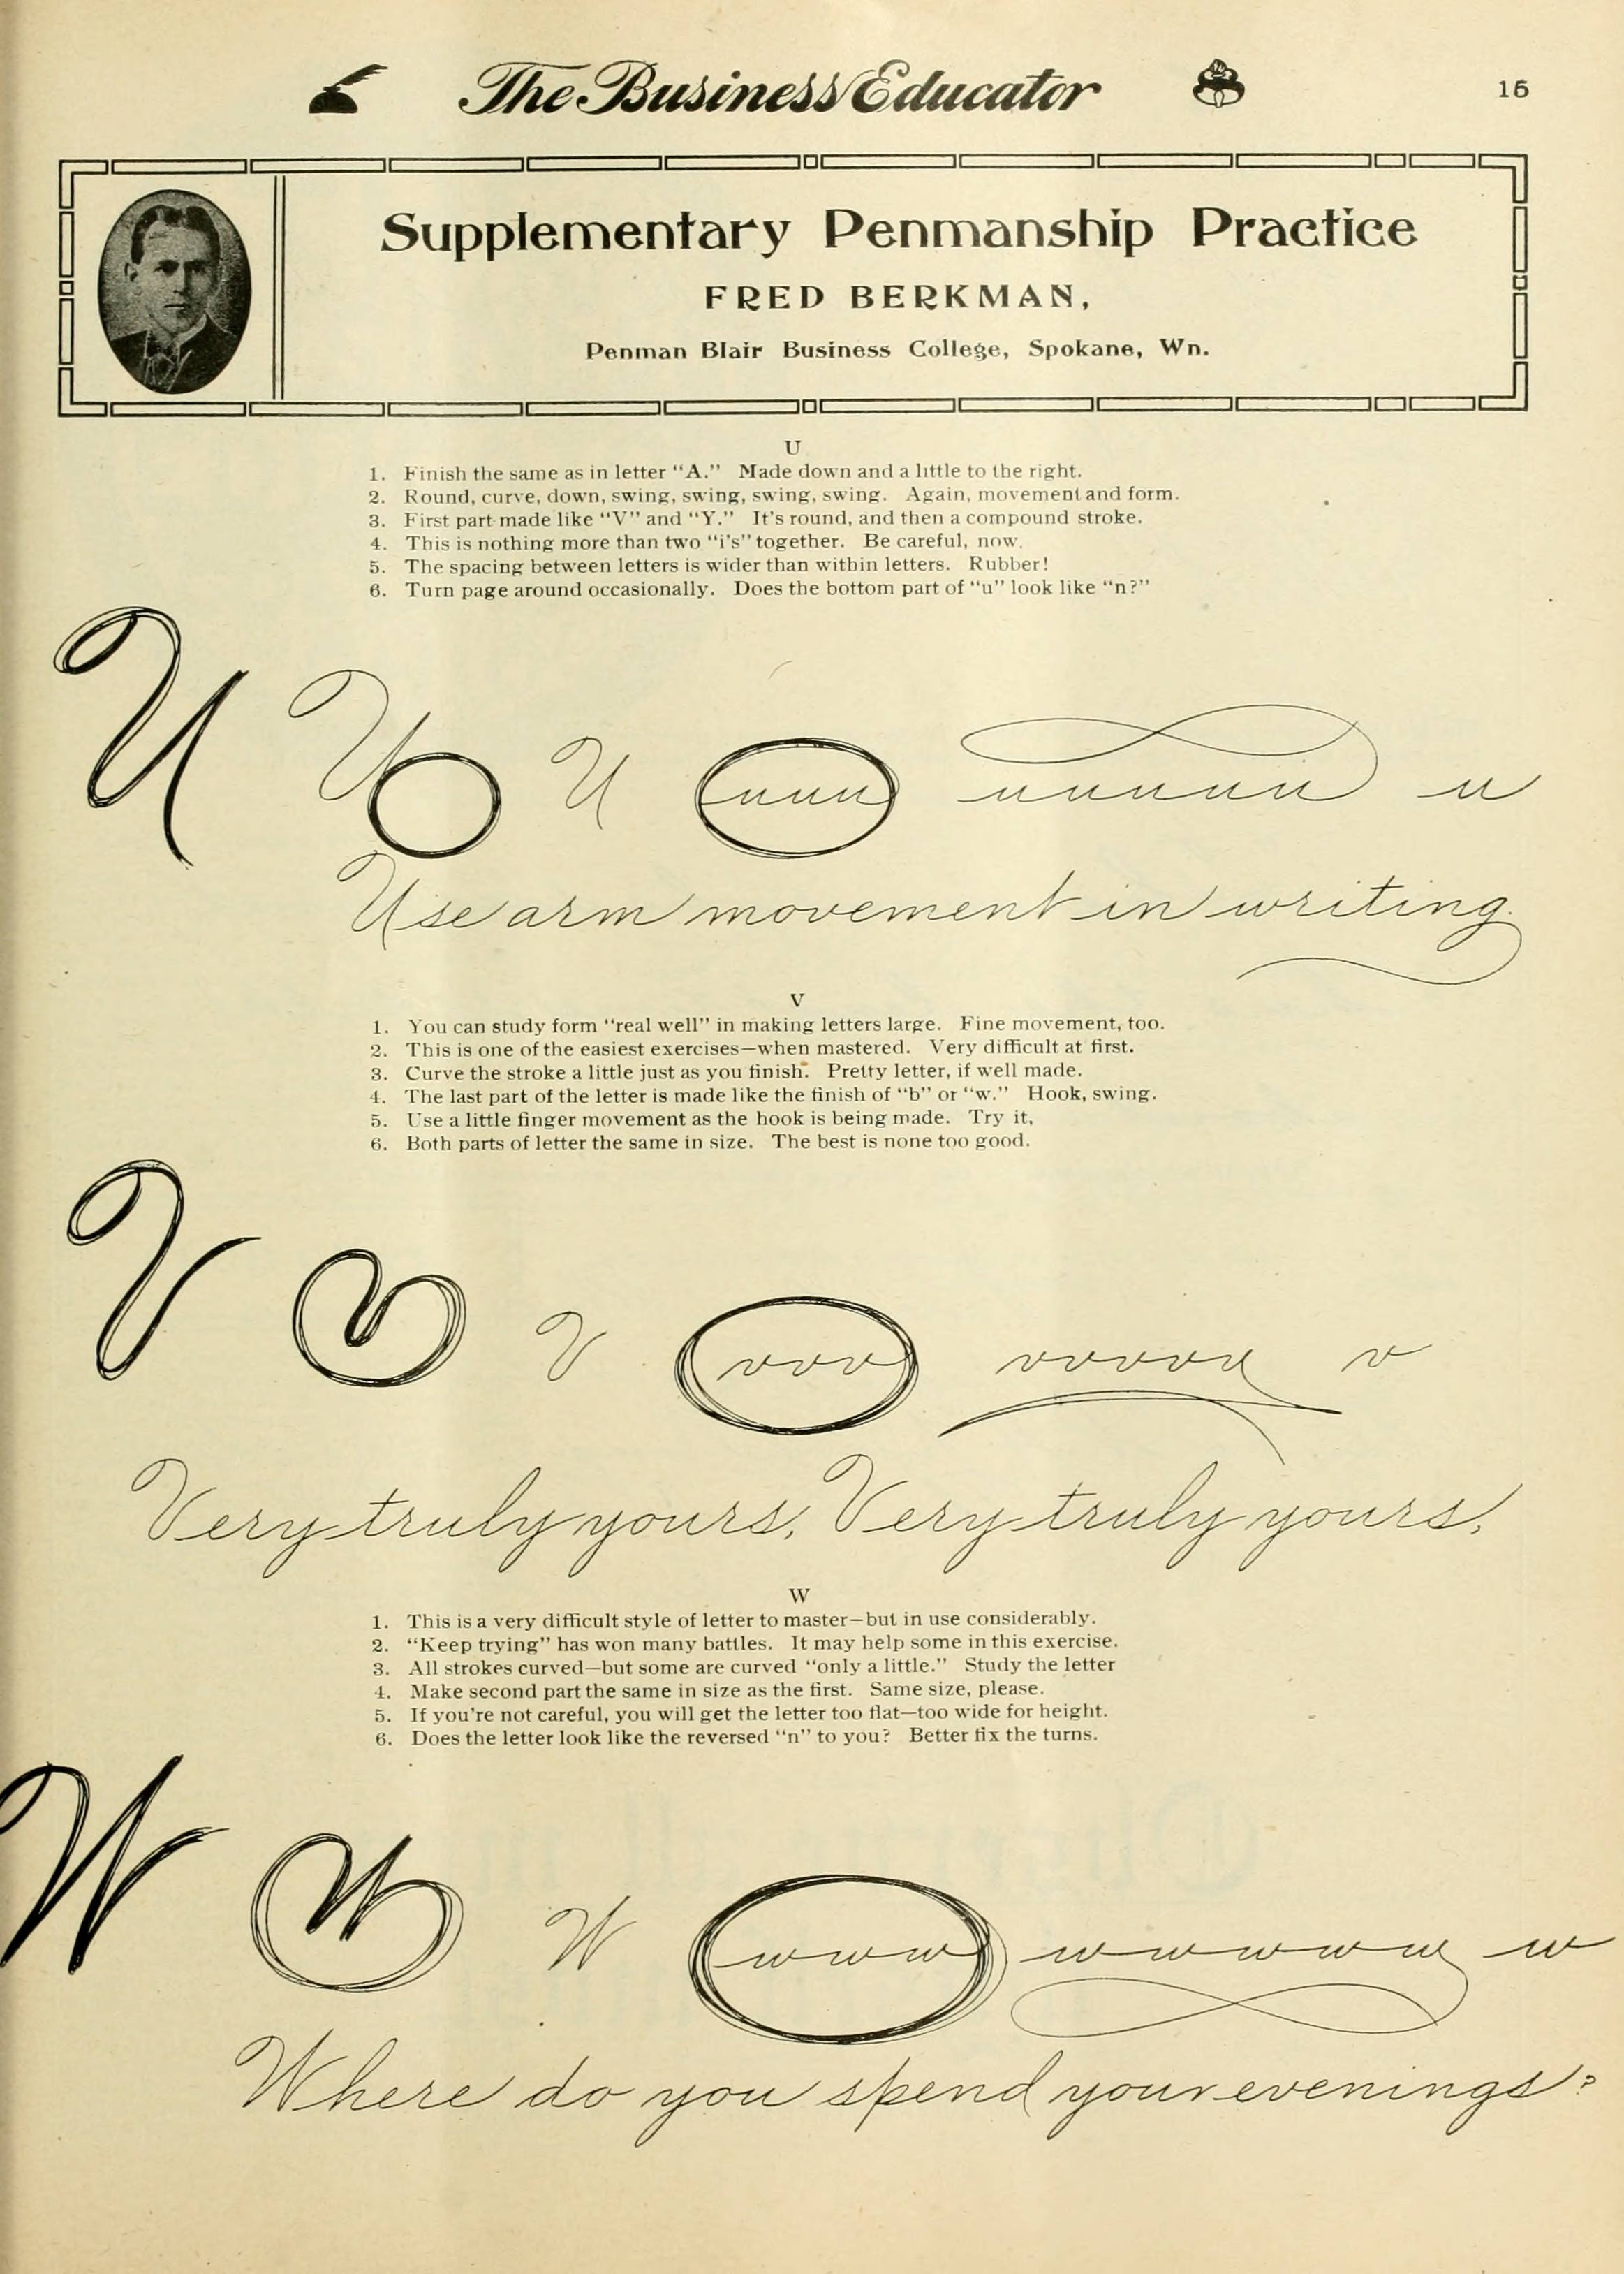 The Business Educator
15
Supplementary Penmanship Practice
FRED BERKMAN,
Penman Blair Business College, Spokane, Wn.
U
1. Finish the same as in letter “A.” Made down and a little to the right.
2. Round, curve, down, swing, swing, swing, swing. Again, movement and form.
3. First part made like “V” and “Y.” It's round, and then a compound stroke.
4. This is nothing more than two “i's” together. Be careful, now.
5. The spacing between letters is wider than within letters. Rubber!
6. Turn page around occasionally. Does the bottom part of “u” look like “n?”
U U U uuu uuuuu u
Use arm movement in writing.
V
1. You can study form “real well” in making letters large. Fine movement, too.
2. This is one of the easiest exercises—when mastered. Very difficult at first.
3. Curve the stroke a little just as you finish. Pretty letter, if well made.
4. The last part of the letter is made like the finish of “b” or “w.” Hook, swing.
5. Use a little finger movement as the hook is being made. Try it,
6. Both parts of letter the same in size. The best is none too good.
V V V vvv vvvvv v
Very truly yours, Very truly yours,
W
1. This is a very difficult style of letter to master—but in use considerably.
2. “Keep trying” has won many battles. It may help some in this exercise.
3. All strokes curved—but some are curved “only a little.” Study the letter
4. Make second part the same in size as the first. Same size, please.
5. If you're not careful, you will get the letter too flat—too wide for height.
6. Does the letter look like the reversed “n” to you? Better fix the turns.
W W W www wwwww w
Where do you spend your evenings?